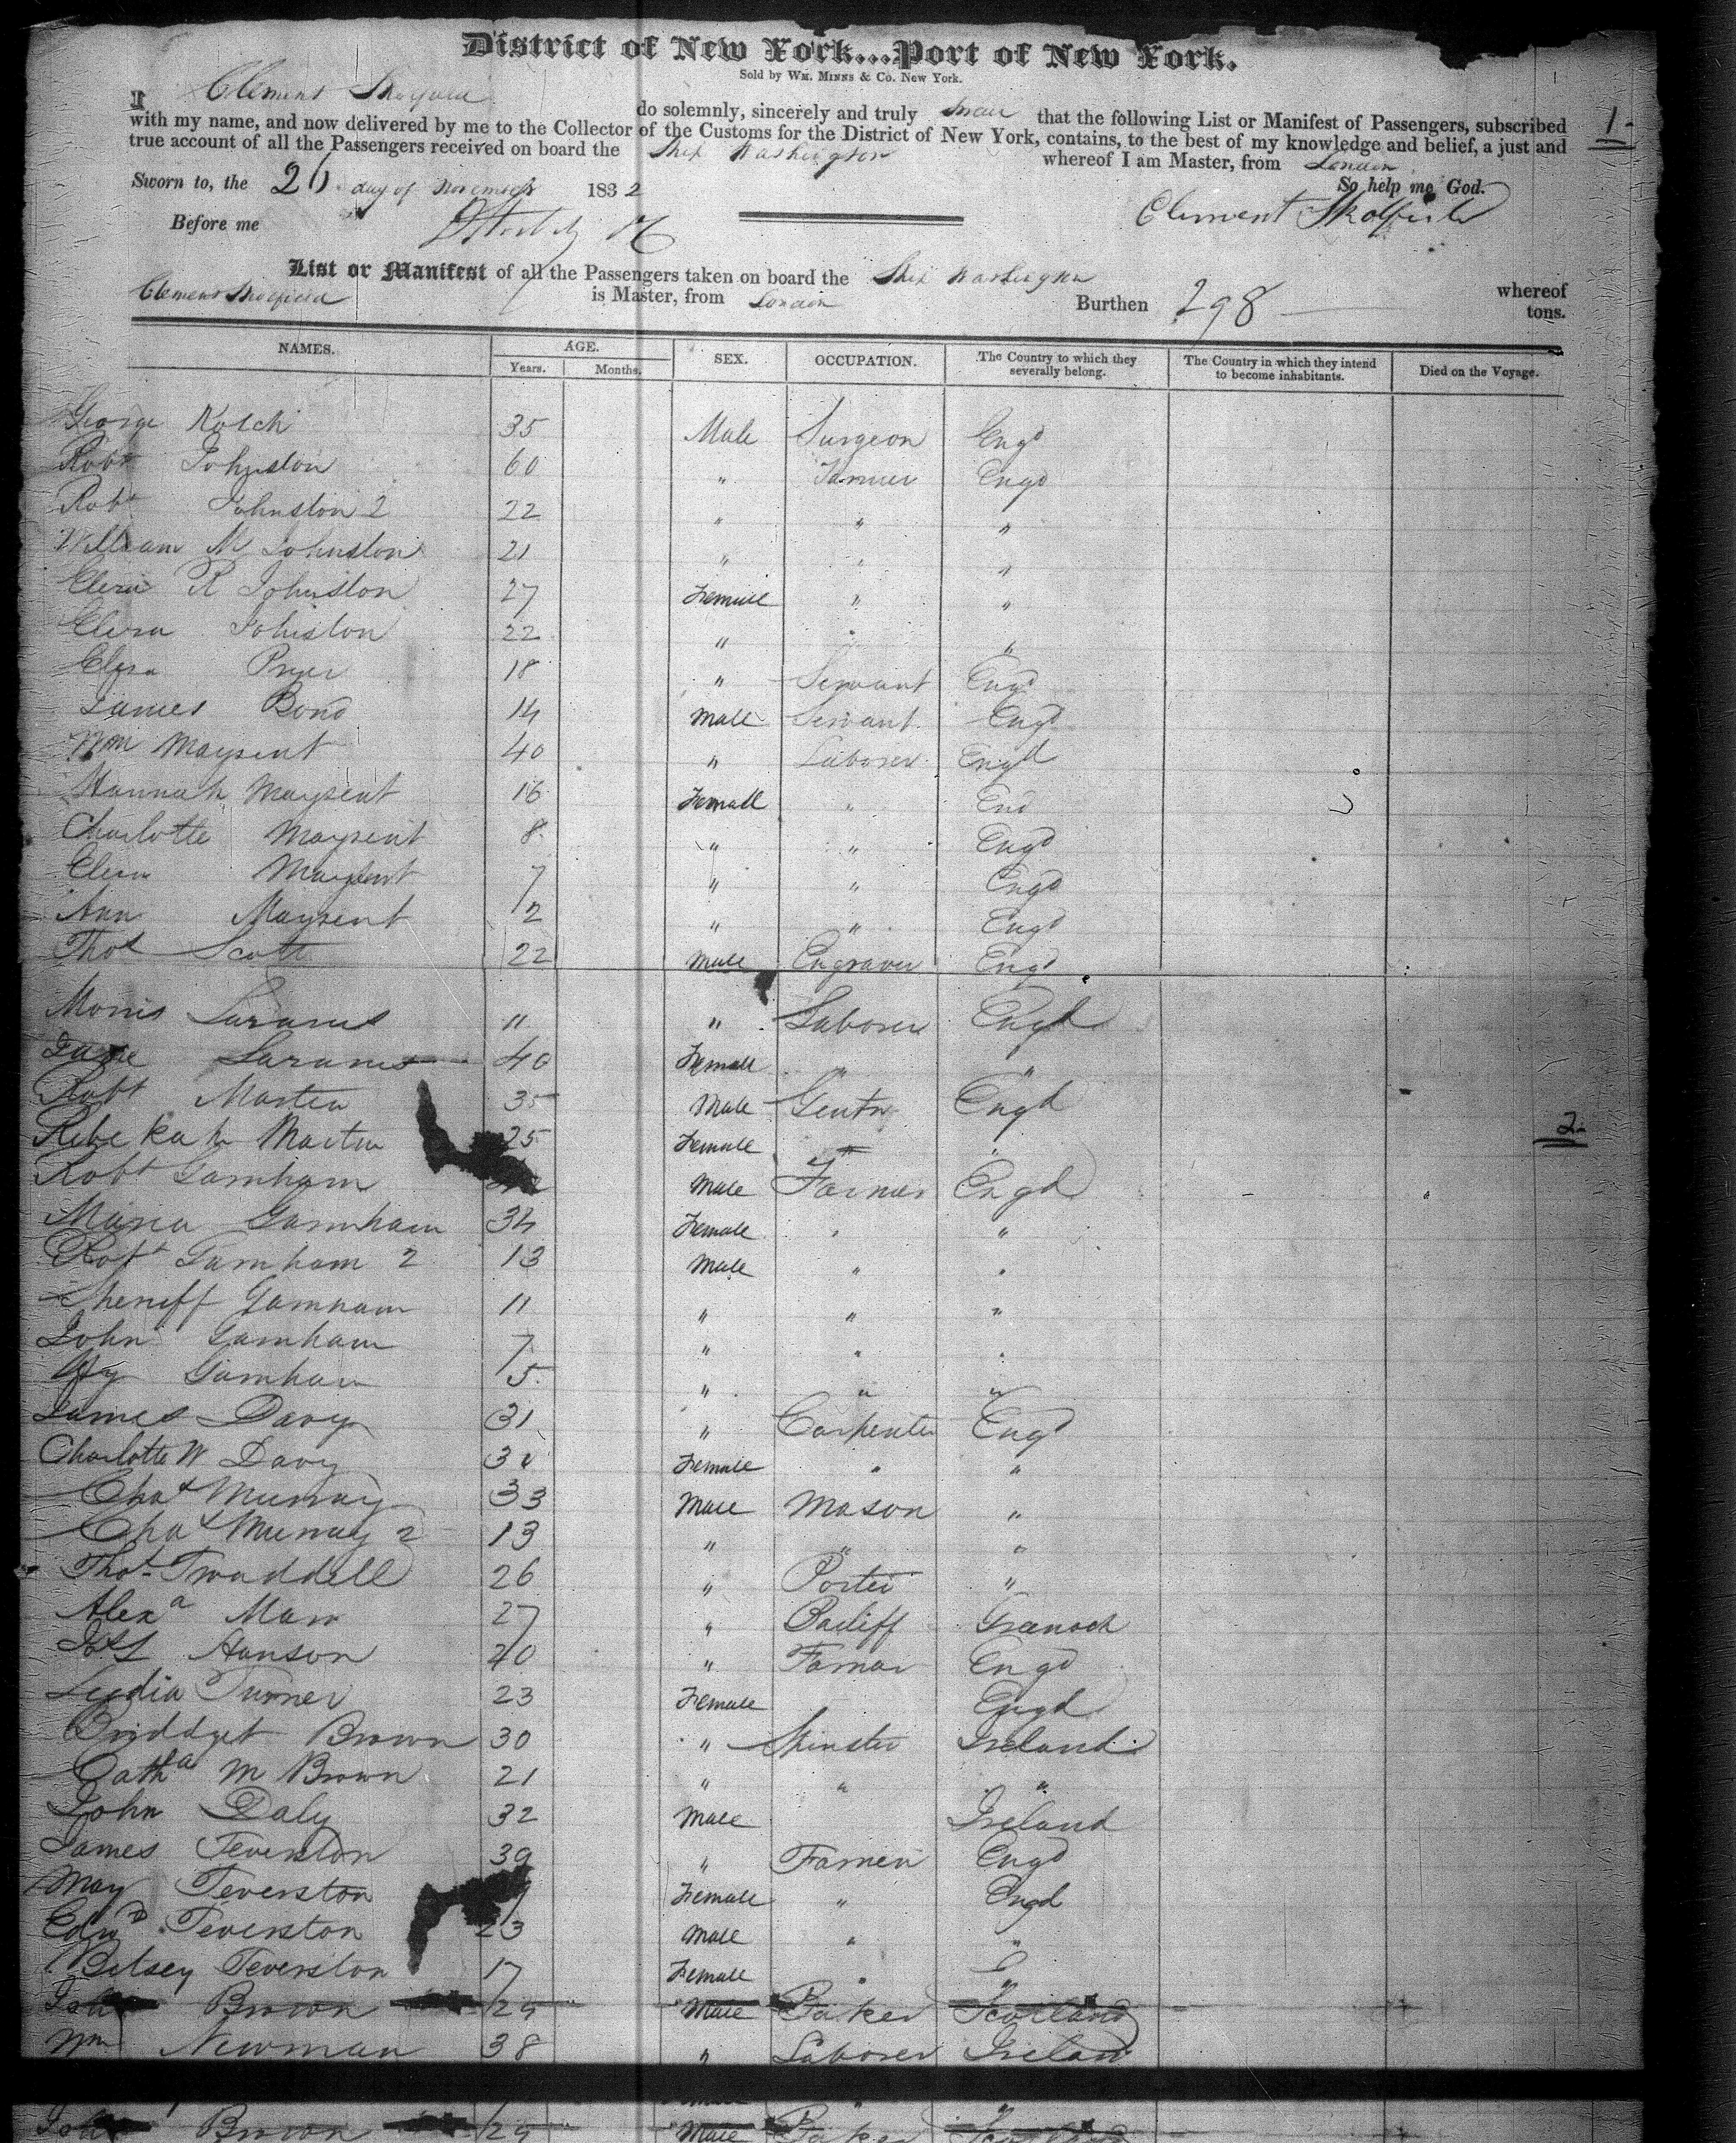 District of New York...Port of New York.
Sold by Wm. Minns & Co. New York.
I Clement Skolfield do solemnly, sincerely and truly Swear that the following List or Manifest of Passengers, subscribed
with my name, and now delivered by me to the Collector of the Customs for the District of New York, contains, to the best of my knowledge and belief, a just and
true account of all the Passengers received on board the Ship Washington whereof I am Master, from London
Sworn to, the 26 day of November 1832 So help me God.
Before me Clement Skolfield
List or Manifest of all the Passengers taken on board the Ship Washington whereof
Clement Skolfield is Master, from London Burthen 298 tons.
NAMES. AGE. Years. Months. SEX. OCCUPATION. The Country to which they severally belong. The Country in which they intend to become inhabitants. Died on the Voyage.
1-
George 35 Male Surgeon Engd
Robt Johnston 60 " Farmer Engd
Robt Johnston 2 22 " " "
William M Johnston 21 " " "
R Johnston 27 Female " "
Johnston 22 " " "
Pryer 18 " Servant Engd
James Bond 14 Male Servant Engd
Wm Maysent 40 " Laborer Engd
Hannah Maysent 16 Female " End
Charlotte Maysent 8 " " Engd
Maysent 7 " " Engd
Ann Maysent 2 " " Engd
Thos Scott 22 Male Engraver Engd
Morris 11 " Laborer Engd
Jane 40 Female " "
Robt Martin 35 Male Gentn Engd
Rebekah Martin 25 Female " "
2-
Robt Garnham Male Farmer Engd
Maria Garnham 34 Female " "
Robt Garnham 2 13 Male " "
Sheriff Garnham 11 " " "
John Garnham 7 " " "
Hy Garnham 5 " " "
James Davy 31 " Carpenter Engd
Charlotte W Davy Female " "
Chas Murray 33 Male Mason "
Chas Murray 2 13 " " "
Thos Twaddell 26 " Porter "
Alexa 27 " Bailiff Greenock
Hanson 40 " Farmer Engd
Lydia Turner 23 Female Engd
Briddget Brown 30 " Spinster Ireland
Catha M Brown 21 " " "
John Daly 32 Male Ireland
James Teverston 39 " Farmer Engd
May Teverston Female " Engd
Edwd Teverston 23 Male " "
Betsey Teverston 17 Female " "
John Brown 29 Male Baker Scotland
Wm Newman 38 " Laborer Ireland
John Brown 29 Male Baker Scotland